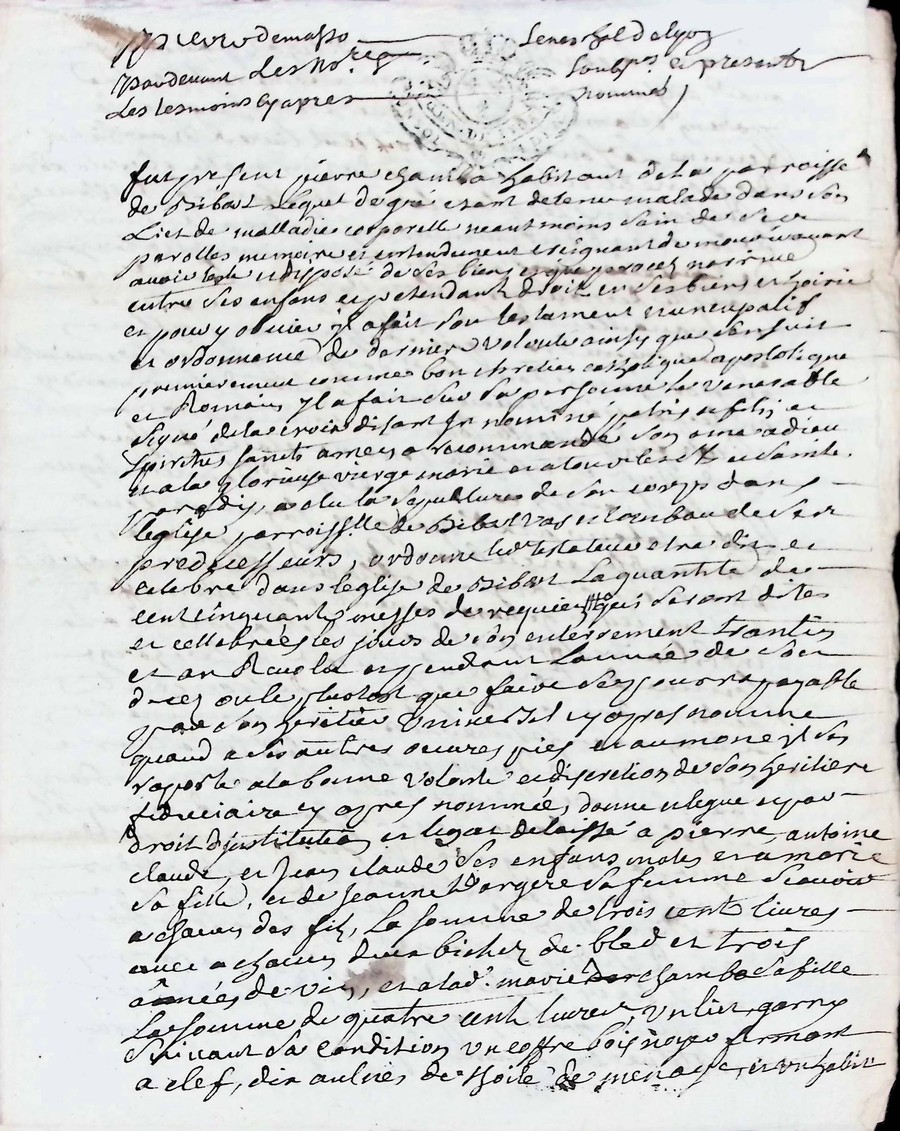 Pierre demasso Seneschal de lyon
Pardevant Les no.res soubs.nes et presents
Les tesmoins cy apres nommes
fut present pierre chamba habitant de la parroisse
de Lequel de gré estant detenu malade dans son
Lict de malladie corporelle neantmoins sain de ses
parolles memoire et entendement creignant de mourir avant
avoir testé et disposé de ses biens et que proces
entre ses enfans et pretendant droit en ses biens et hoirie
et pour y obvier yl a fait son testament nuncupatif
et ordonnance de dernier volonte ainsy que sensuit
premierement comme bon chretien catholique apostolique
et Romain yl a fait sur sa personne le venerable
signe de la croix disant In nomine patris et filij et
spiritus sancti amen a recommandé son ame a dieu
et a la glorieuse vierge marie et a tous les s.ts et saintes
paradis, a elu la sepultures de son corps dans
leglise parroissialle de vas et tombau de ses
predecesseurs, ordonne led. testateur estre dit et
celebre dans leglise de La quantité de
cent cinquante messes de requiem qui seront dites
et cellebrées les jours de son enterrement trantin
et an Revolu et pendant lannée de son
deces ou le plustost que faire se pourra payable
par son heritier universel cy apres nommé
quand a ses autres oeuvres pies et aumone yl sen
raporte a la bonne volonté et discretion de son heritiere
fiduciaire cy apres nommée, donne et legue et par
droit d'institution et legat delaissé a pierre, antoine
claude, et Jean claude ses enfans males et a marie
sa fille, et de Jeanne sa femme scavoir
a chacun des fils, La somme de trois cent livres
avec a chacun deux bichez de bled et trois
années de vin, et a lad. marie chamba sa fille
La somme de quatre cent livres, un lict garny
suivant sa condition un coffre bois noyer fermant
a clef, dix aulnes de toile de menage, et un habit